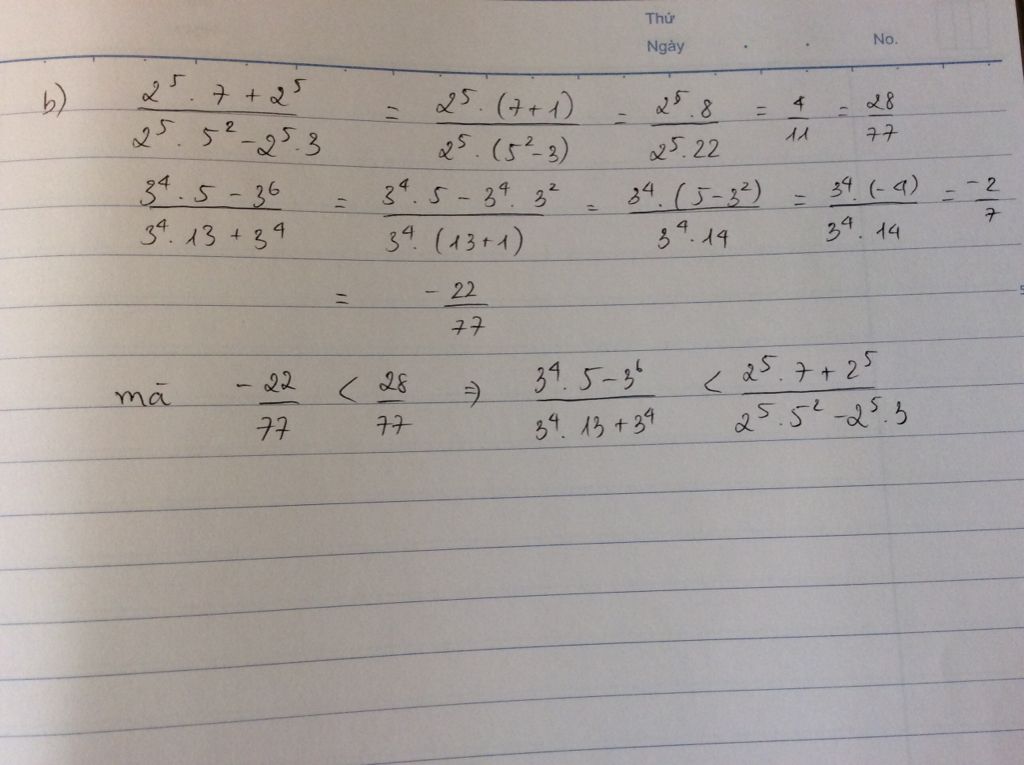 Thứ
Ngày . . No.
b) \frac{2^5 . 7 + 2^5}{2^5 . 5^2 - 2^5 . 3} = \frac{2^5 . (7+1)}{2^5 . (5^2 - 3)} = \frac{2^5 . 8}{2^5 . 22} = \frac{4}{11} = \frac{28}{77}
\frac{3^4 . 5 - 3^6}{3^4 . 13 + 3^4} = \frac{3^4 . 5 - 3^4 . 3^2}{3^4 . (13+1)} = \frac{3^4 . (5 - 3^2)}{3^4 . 14} = \frac{3^4 . (-4)}{3^4 . 14} = \frac{-2}{7}
= \frac{-22}{77}
mà \frac{-22}{77} < \frac{28}{77} ⇒ \frac{3^4 . 5 - 3^6}{3^4 . 13 + 3^4} < \frac{2^5 . 7 + 2^5}{2^5 . 5^2 - 2^5 . 3}